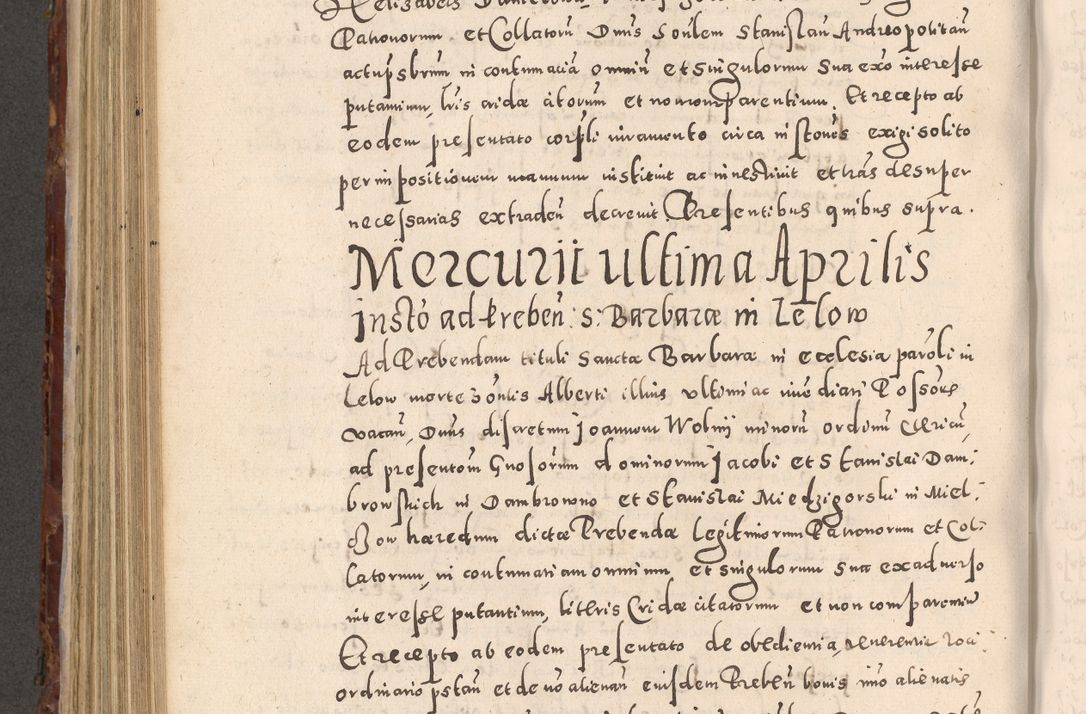 Patronorum et Collatorũ Dnũs Soulem Stanislaũ Andreopolitañ
actu psbrum in contumaciã omniũ et singulorum sua exõ interesse
putantium, lrĩs cridæ citorum et non comparentium. Et recepto ab
eodem presentato corpli iuramento circa instones exigi solito
per impositionem manuum instituit ac investivit et lrãs desuper
necessarias extradeñ decrevit Presentibus quibus supra.
Mercurii ultima Aprilis
Instõ ad Prebeñ: S: Barbaræ in Lelow
Ad Prebendam tituli Sanctæ Barbaræ in ecclesia parõli in
Lelow morte 3õntis Alberti illius ultimi ac immediati Possõris
vacañ, Dnũs discretum Joannem Wolnÿ minorũ ordinũ Clericũ,
ad presentõm Gnosõrum dominorum Jacobi et Stanislai Dam:
browskich in Dambrowno et Stanislai Miedzigorski in Miel:
Bow hæredum dictæ Prebendæ Legitimorum Patronorum et Col:
latorum, in contumatiam omnium et singulorum sua exadverso
interesse putantium, litteris Cridæ citatorum et non comparentiũ
Et recepto ab eodem presentato de obedientia, reverentia loci
ordinario pstañ et de nõ alienañ eiusdem Prebeñ bonis imõ alienatis